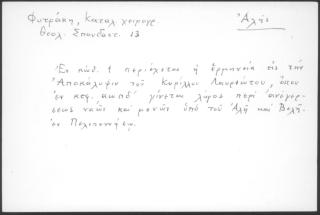 Φυτράκη, Καταλ. χειρογρ.
Θεολ. Σπουδαστ. 13
Ἀλῆς
Ἐν κώδ. 1 περιέχεται ἡ ἑρμηνεία εἰς τὴν
Ἀποκάλυψιν τοῦ Κυρίλλου Λαυριώτου, ὅπου
ἐν κεφ. γίνεται λόγος περὶ ἀνεγέρ-
σεως ναῶν καὶ μονῶν ὑπὸ τοῦ Ἀλῆ καὶ Βελῆ
ἐν Πελοποννήσῳ.